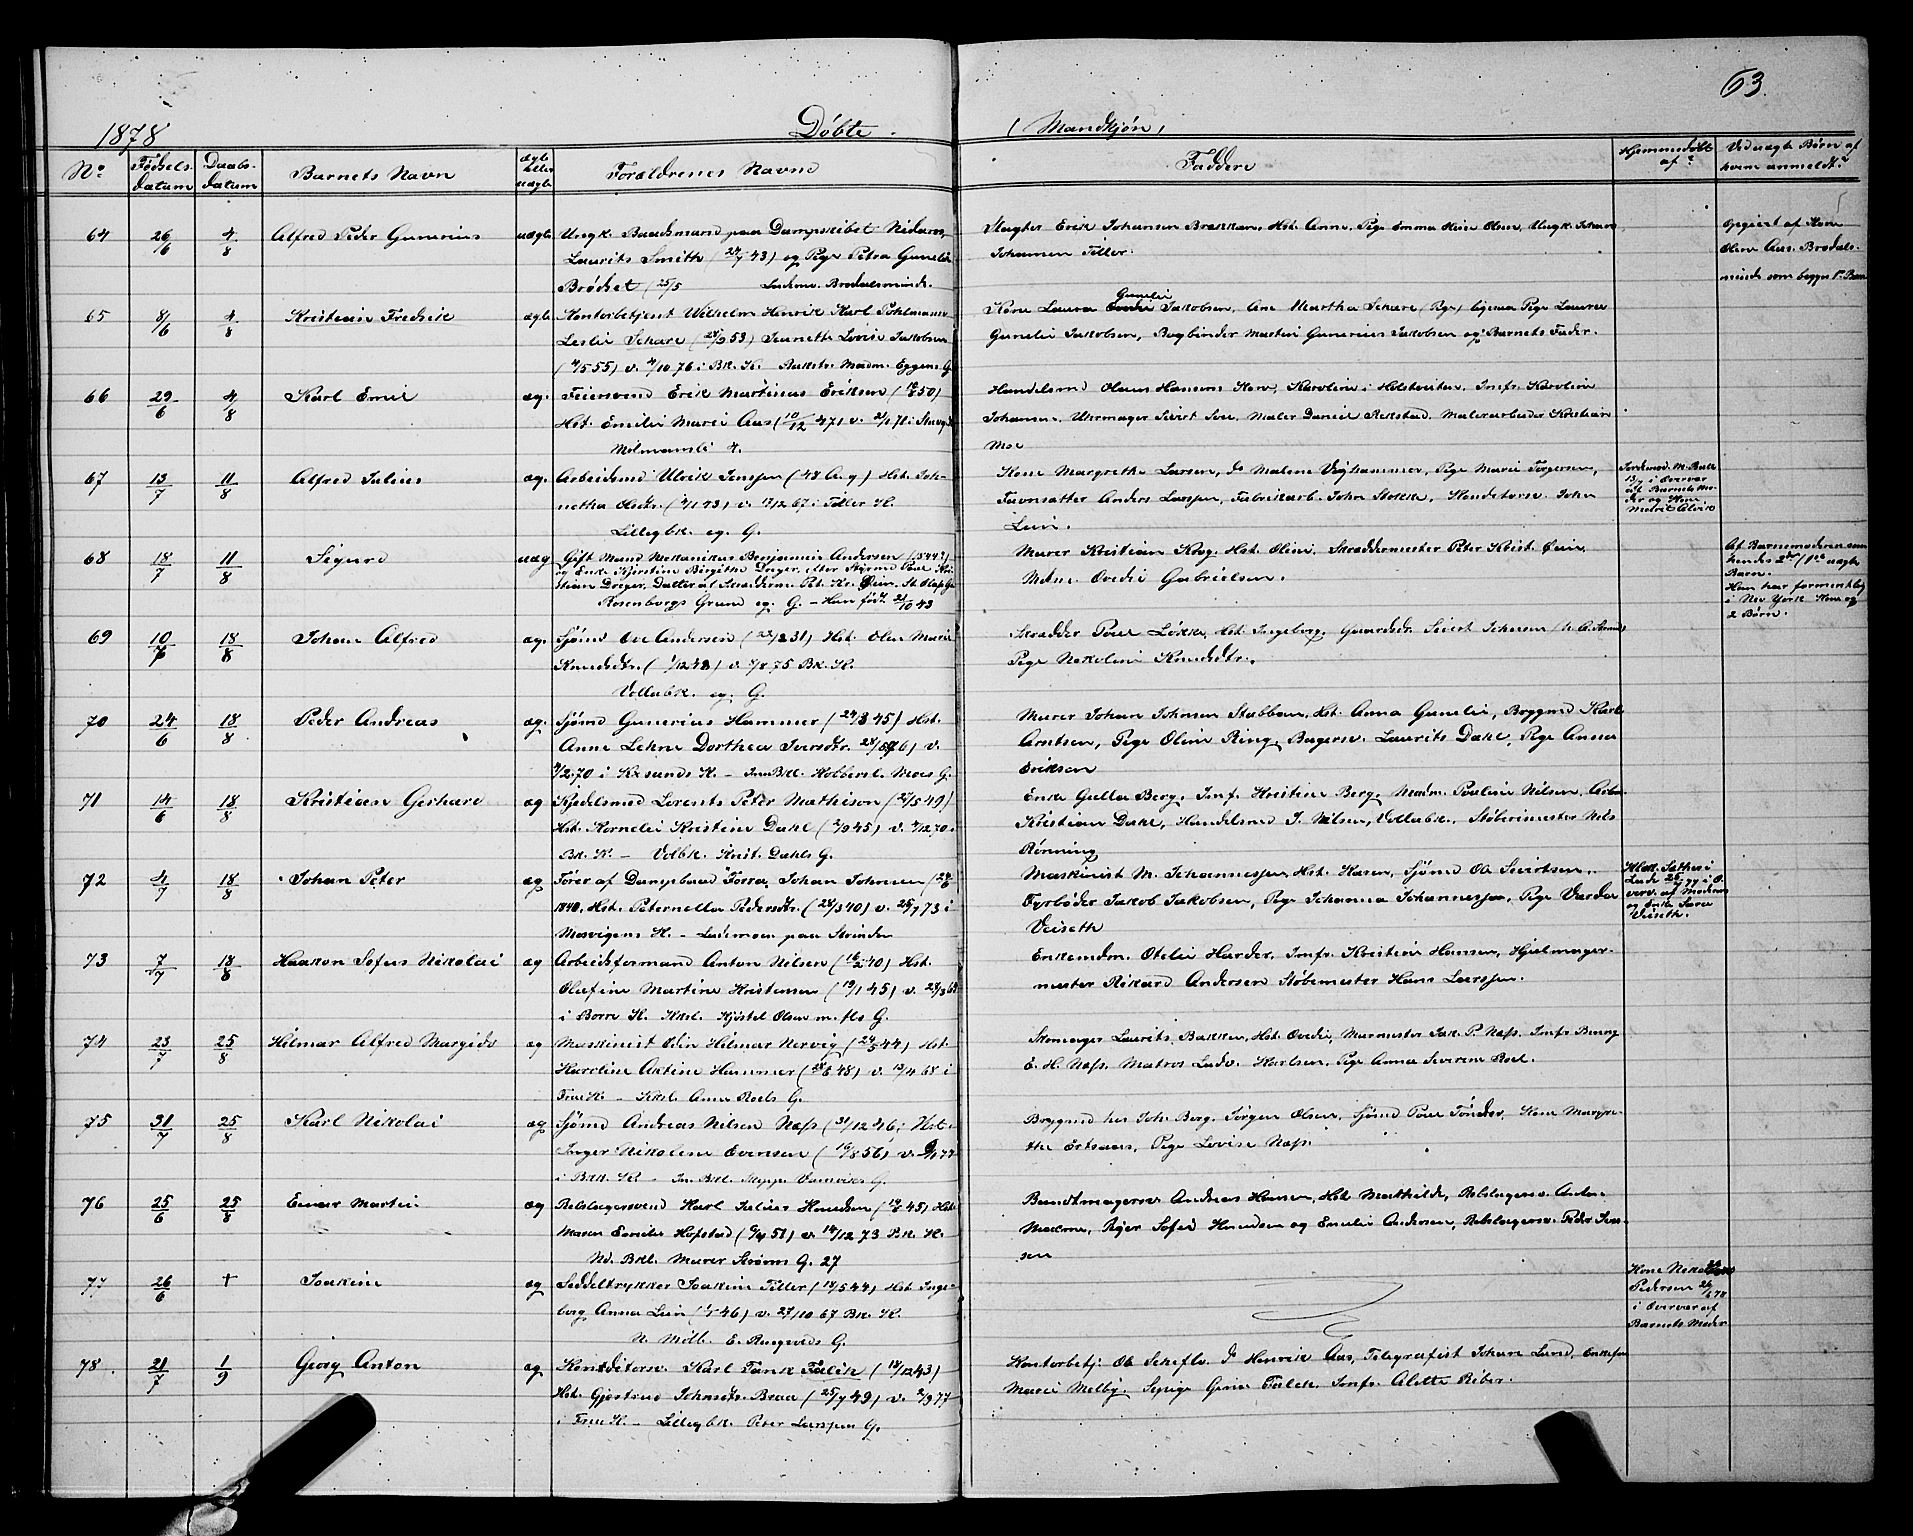 63.
1878
Døbte.
(Mandkjøn)
No
Fødsels-
datum
Daabs-
datum
Barnets Navn
ægte
eller
uægte
Forældrenes Navne
Faddere
Hjemmedøbt
af?
Ved uægte Børn af
hvem anmeldt?
64
26/6
4/8
Alfred Peder Gunerius
uægte
Ungk. Baadsmand paa Dampskibet Nidaros,
Laurits Smith (43) og Pige Petra Gunelie
Brødset (25/5 Ludvine Brødalsminde.
Slagter Erik Johansen Brækken, Hst. Anne, Pige Emma Oline Olsen, Ungk. Johan
Johansen Tiller.
Opgivet af Kone
Oline Aas. Brødals-
minde som begges 1ste Barn
65
8/6
4/8
Kristian Fredrik
ægte
Kontorbetjent Wilhelm Henrik Karl Pohlmann
Leslie Schare (53) Jeanette Lovise Jakobsen
(4/5 55) v. 4/10 76 i Bk. K. Bakstr. Madm. Eggens G.
Kone Laura Gunelie Jakobsen, Ane Martha Schare (Pge) ligesaa Pige Laura
Gunelie Jakobsen, Bogbinder Martin Gunerius Jakobsen og Barnets Fader.
66
29/6
4/8
Karl Emil
æg.
Feiersvend Erik Martinus Eriksen (50)
Hst. Emilie Marie Aas (10/12 47) v. 2/1 71 i
4.
Handelsmd Olaus Hansens Kone, Karoline i Holstveiten, Jmfr. Karoline
Johansen, Uhrmager Sivert Moe, Maler Daniel Rekstad, Malerarbeider Kristian
Moe
67
13/7
11/8
Alfred Julius
æg.
Arbeidsmd Ulrik Jenssen (48 A. g) Hst. Joh-
netha Olsdtr. (1/1 43) v. 17/12 67 i Tiller K.
Lillegbk. eg. G.
Kone Margrethe Larsen, do Malene Vighammer, Pige Marie Torgersen,
Favnsætter Anders Larssen, Fabrikarb. John Stokke, Handelsborg. John
Lein.
Jordemod. M. Bull
13/7 i Overvær
af Barnets Mo-
der og Kone
Marit Alvik
68
18/7
11/8
Sigurd
uæg
Gift Mand Mekanikus Benjamin Andersen (5 44?)
og Enke Kjerstine Birgithe Dreyer, efter Styrmd Poul Kri-
stian Dreyer, Datter af Skræderm. Pet. Kr. Øien, St. Olafs G.
Rosenborgs Grund eg. G. — Han født 21/10 43
Murer Kristian Krog, Hst. Oline, Skreddermester Peter Krist. Øien,
Madme Ovedie Gabrielsen.
Af Barnemoderen som
hendes 2det / 1ste uægte
Barn.
Han har formentlig
i New York Kone og
2 Børn.
69
10/7
18/8
Johan Alfred
æg.
Sjømd Ole Andersen (31) Hst. Olea Marie
Knudsdtr. (1/12 48) v. 1/8 75 Bk. K.
Vollabk. eg. G.
Skrædder Poul Løkke, Hst. Ingeborg, Gaardsdr. Sivert Johnsen
Pige Nikoline Knudsdtr.
70
24/6
18/8
Peder Andreas
æg.
Sjømd Gunerius Hammer (24/8 45) Hst.
Anne Lehne Dorthea Iversdtr. v.
4/2 70 i Krsunds K. — Ind. Bkl. Holbersl. Moes G.
Murer Johan Johnsen Stubban, Hst. Anna Gunelie, Brygmd Karl
Arntsen, Pige Oline Ring, Bagersv. Laurits Dahl, Pige Anna
Eriksen
71
14/6
18/8
Kristian Gerhard
æg
Kjedelsmed Lorents Peter Mathison (27/5 49)
Hst. Kornelie Kristine Dahl (2/9 45) v. 4/12 70 i
Bk. K. — Volbk. Krist. Dahls G.
Enke Gulla Berg, Jmf. Kristine Berg, Madm. Pauline Nilsen, Arbm.
Kristian Dahl, Handelsmd J. Nilsen, Vollabk., Støberimester Nils
Rønning
72
4/7
18/8
Johan Peter
æg
Fører af Dampbaad "Forra," Johan Johnsen (24/6
1840. Hst. Peternella Pedersdtr. (24/3 40) v. 25/7 73 i
Mosvigens K. — Lademoen paa Strinden
Maskinist M. Johannessen, Hst. Karen, Sjømd Ole Sivertsen,
Fyrbøder Jakob Jakobsen, Pige Johanna Johannessen, Pige Vardea
Veiseth
i
Lade 25/7 77 i O-
verv. af Moderen
og Enke Sara
Veiseth.
73
7/7
18/8
Haakon Sofus Nikolai
æg
Arbeidsformand Anton Nilsen (16/2 40) Hst.
Olafine Martine Kristensen (19/1 45) v. 29/3 68
i Borre K. Ikkl. Kjøstel Olsen m. fls G.
Enkemdm. Otelie Harder, Jmfr. Kristine Hansen, Hjulmager-
mester Rikard Andersen Støbemester Hans Larssen.
74
23/7
25/8
Hilmar Alfred Margido
æg
Maskinist Odin Hilmar Nervig (24/5 44) Hst.
Karoline Aktine Hammer (48) v. 12/4 68 i
Frue K. — Ikkl. Anne Roels G.
Skomager Laurits Bakken, Hst. Ovedie, Murmester Jak. P. Næss, Jmfr. Bereg.
E. H. Næss, Matros Ludv. Karlsen, Pige Anna Severine Roel.
75
31/7
25/8
Karl Nikolai
æg
Sjømd Andreas Nilsen Næss (31/12 46, Hst.
Inger Nikoline Evensen (16/8 56) v. 77
i Bkk. K. — Ind. Bkl. Skipper G.
Brygmd hos Joh. Berg, Jørgen Olsen, Sjømd Poul Tønder, Kone Margre-
the Ertsaas, Pige Lovise Næss.
76
25/6
25/8
Einar Martin
æg
Rebslagersvend Karl Julius Knudsen (45) Hst.
Maren Emilie Hofstad (51) v. 14/12 73 Bk. K.
Nd. Bkl. Murer Strøms G. 27
Bundtmagersv. Andreas Hansen, Hst. Mathilde, Rebslagersv. Anton
Malone, Piger Sofie Knudsen og Emilie Andersen, Rebslagersv. Peder Iver-
sen
77
26/6
+
Joakim
æg
Seddeltrykker Joakim Tiller (18/5 44) Hst. Inge-
borg Anna Lein (46) v. 27/10 67 Bk. K.
N. Møllb. E. Ringveds G.
Kone Nikoline
Pedersen 26/6 78
i Overvær af
Barnets Moder
78.
21/7
1/9
Georg Anton
æg
Konditorsv. Karl Tank Falck (12/12 43)
Hst. Gjertrud Johnsdtr. Braa (25/7 49) v. 2/9 77
i Frue K. — Lillegbk. Peter Larssen G.
Kontorbetj. Ole Schefte, do Henrik Aas, Telegrafist Johan Lund, Enkefru
Marie Melby, Sypige Gina Falck, Jmfr. Alette Riber.